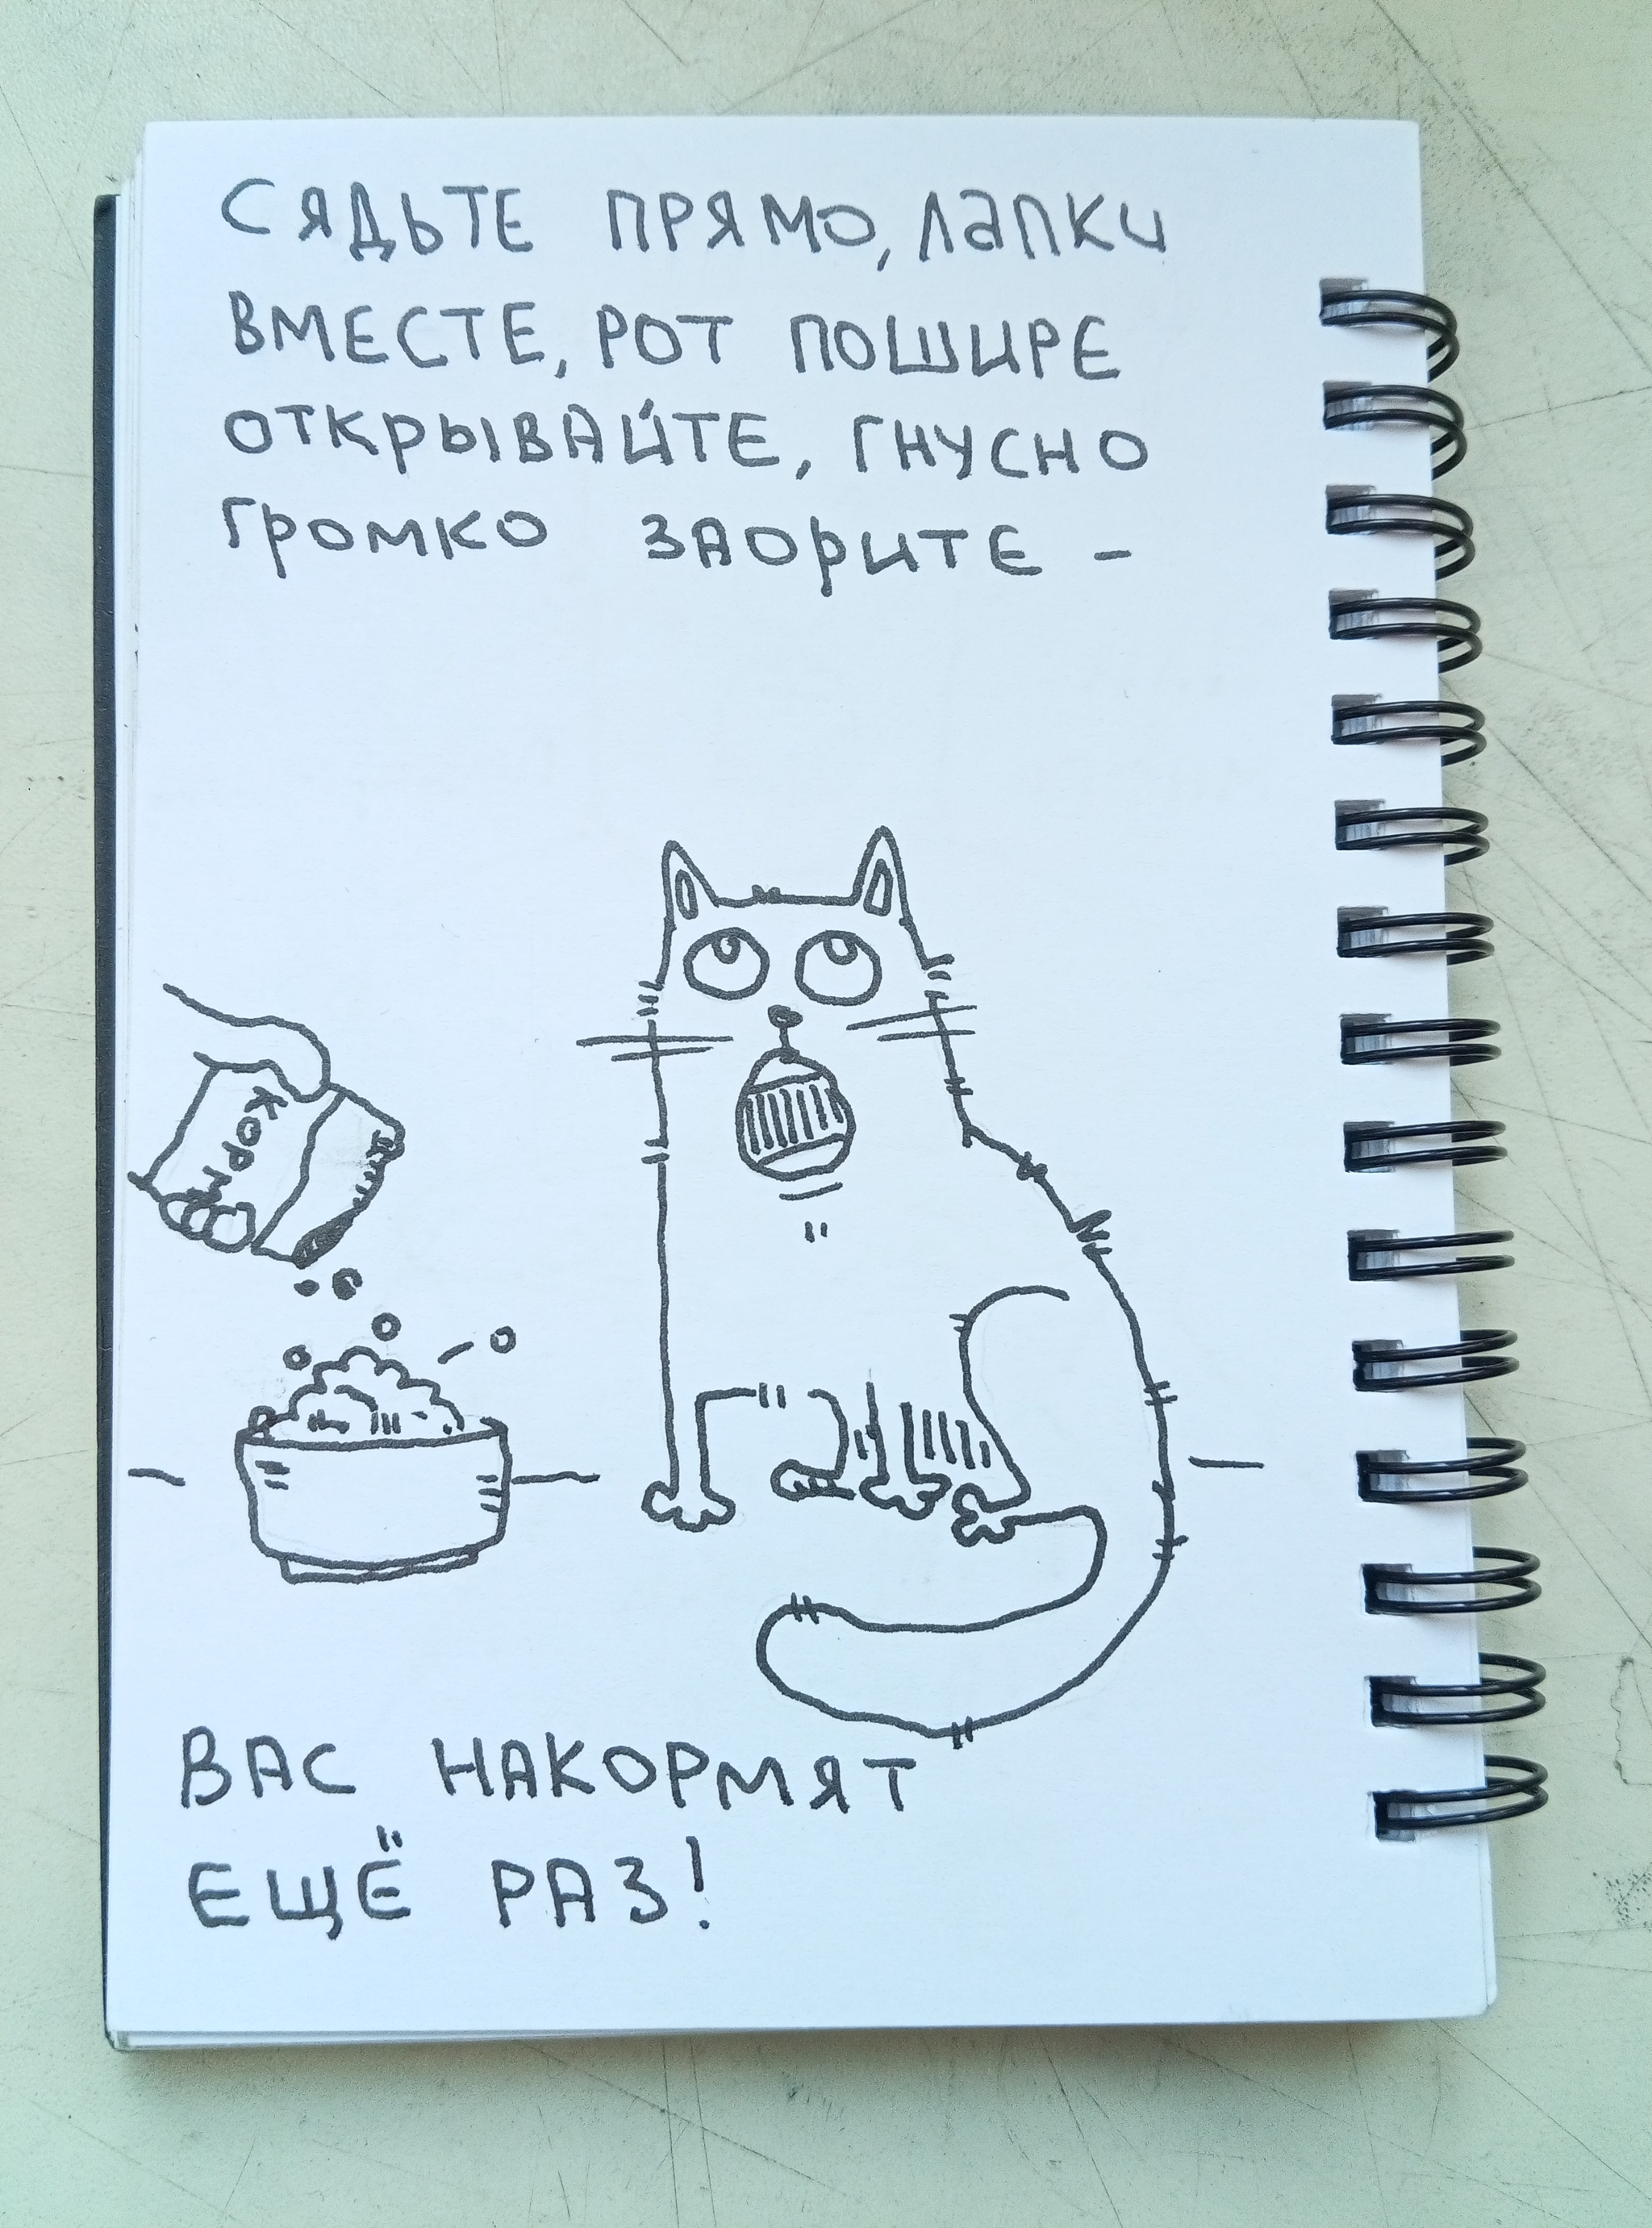 СЯДЬТЕ ПРЯМО, ЛАПКИ
ВМЕСТЕ, РОТ ПОШИРЕ
ОТКРЫВАЙТЕ, ГНУСНО
ГРОМКО ЗАОРИТЕ -
КОРМ
ВАС НАКОРМЯТ
ЕЩЁ РАЗ!